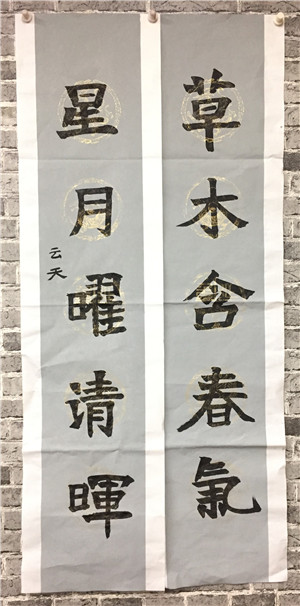 草木含春氣
星月曜清暉
云天